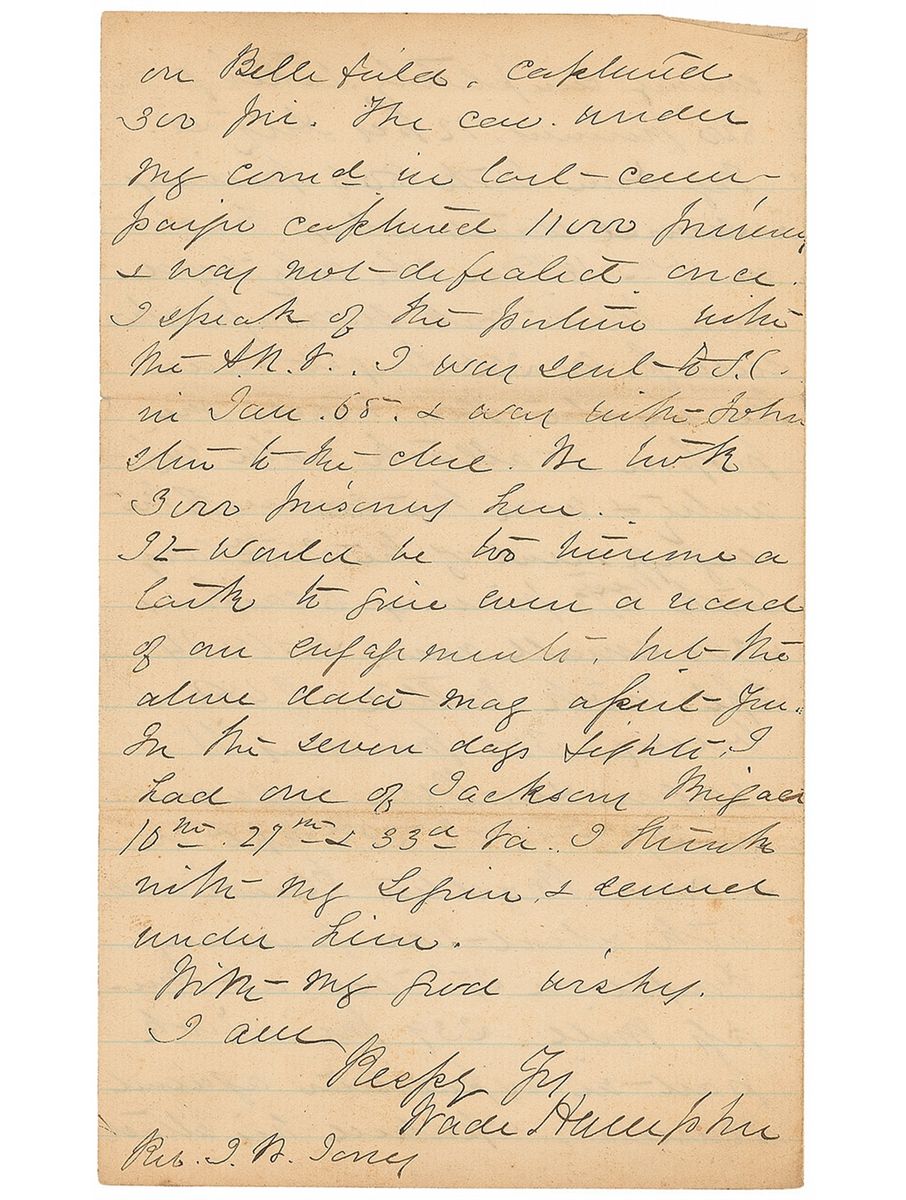 on Belle field, captured
300 pri. The cav. under
my comd in last cam-
paign captured 11000 prisoners
& was not defeated once.
I speak of the portion with
the A.N.V.. I was sent to S.C.
in Jan. 65. & was with John
ston to the close. We took
3000 prisoners here.
It would be too tiresome a
task to give even a record
of our engagements, but the
above data may assist you.
In the seven days fights, I
had one of Jacksons Brigades
10th. 27th & 33d Va. I think
with my Legion, & served
under him.
With my good wishes.
I am
Respy Yrs
Wade Hampton
Rev. J. W. Jones